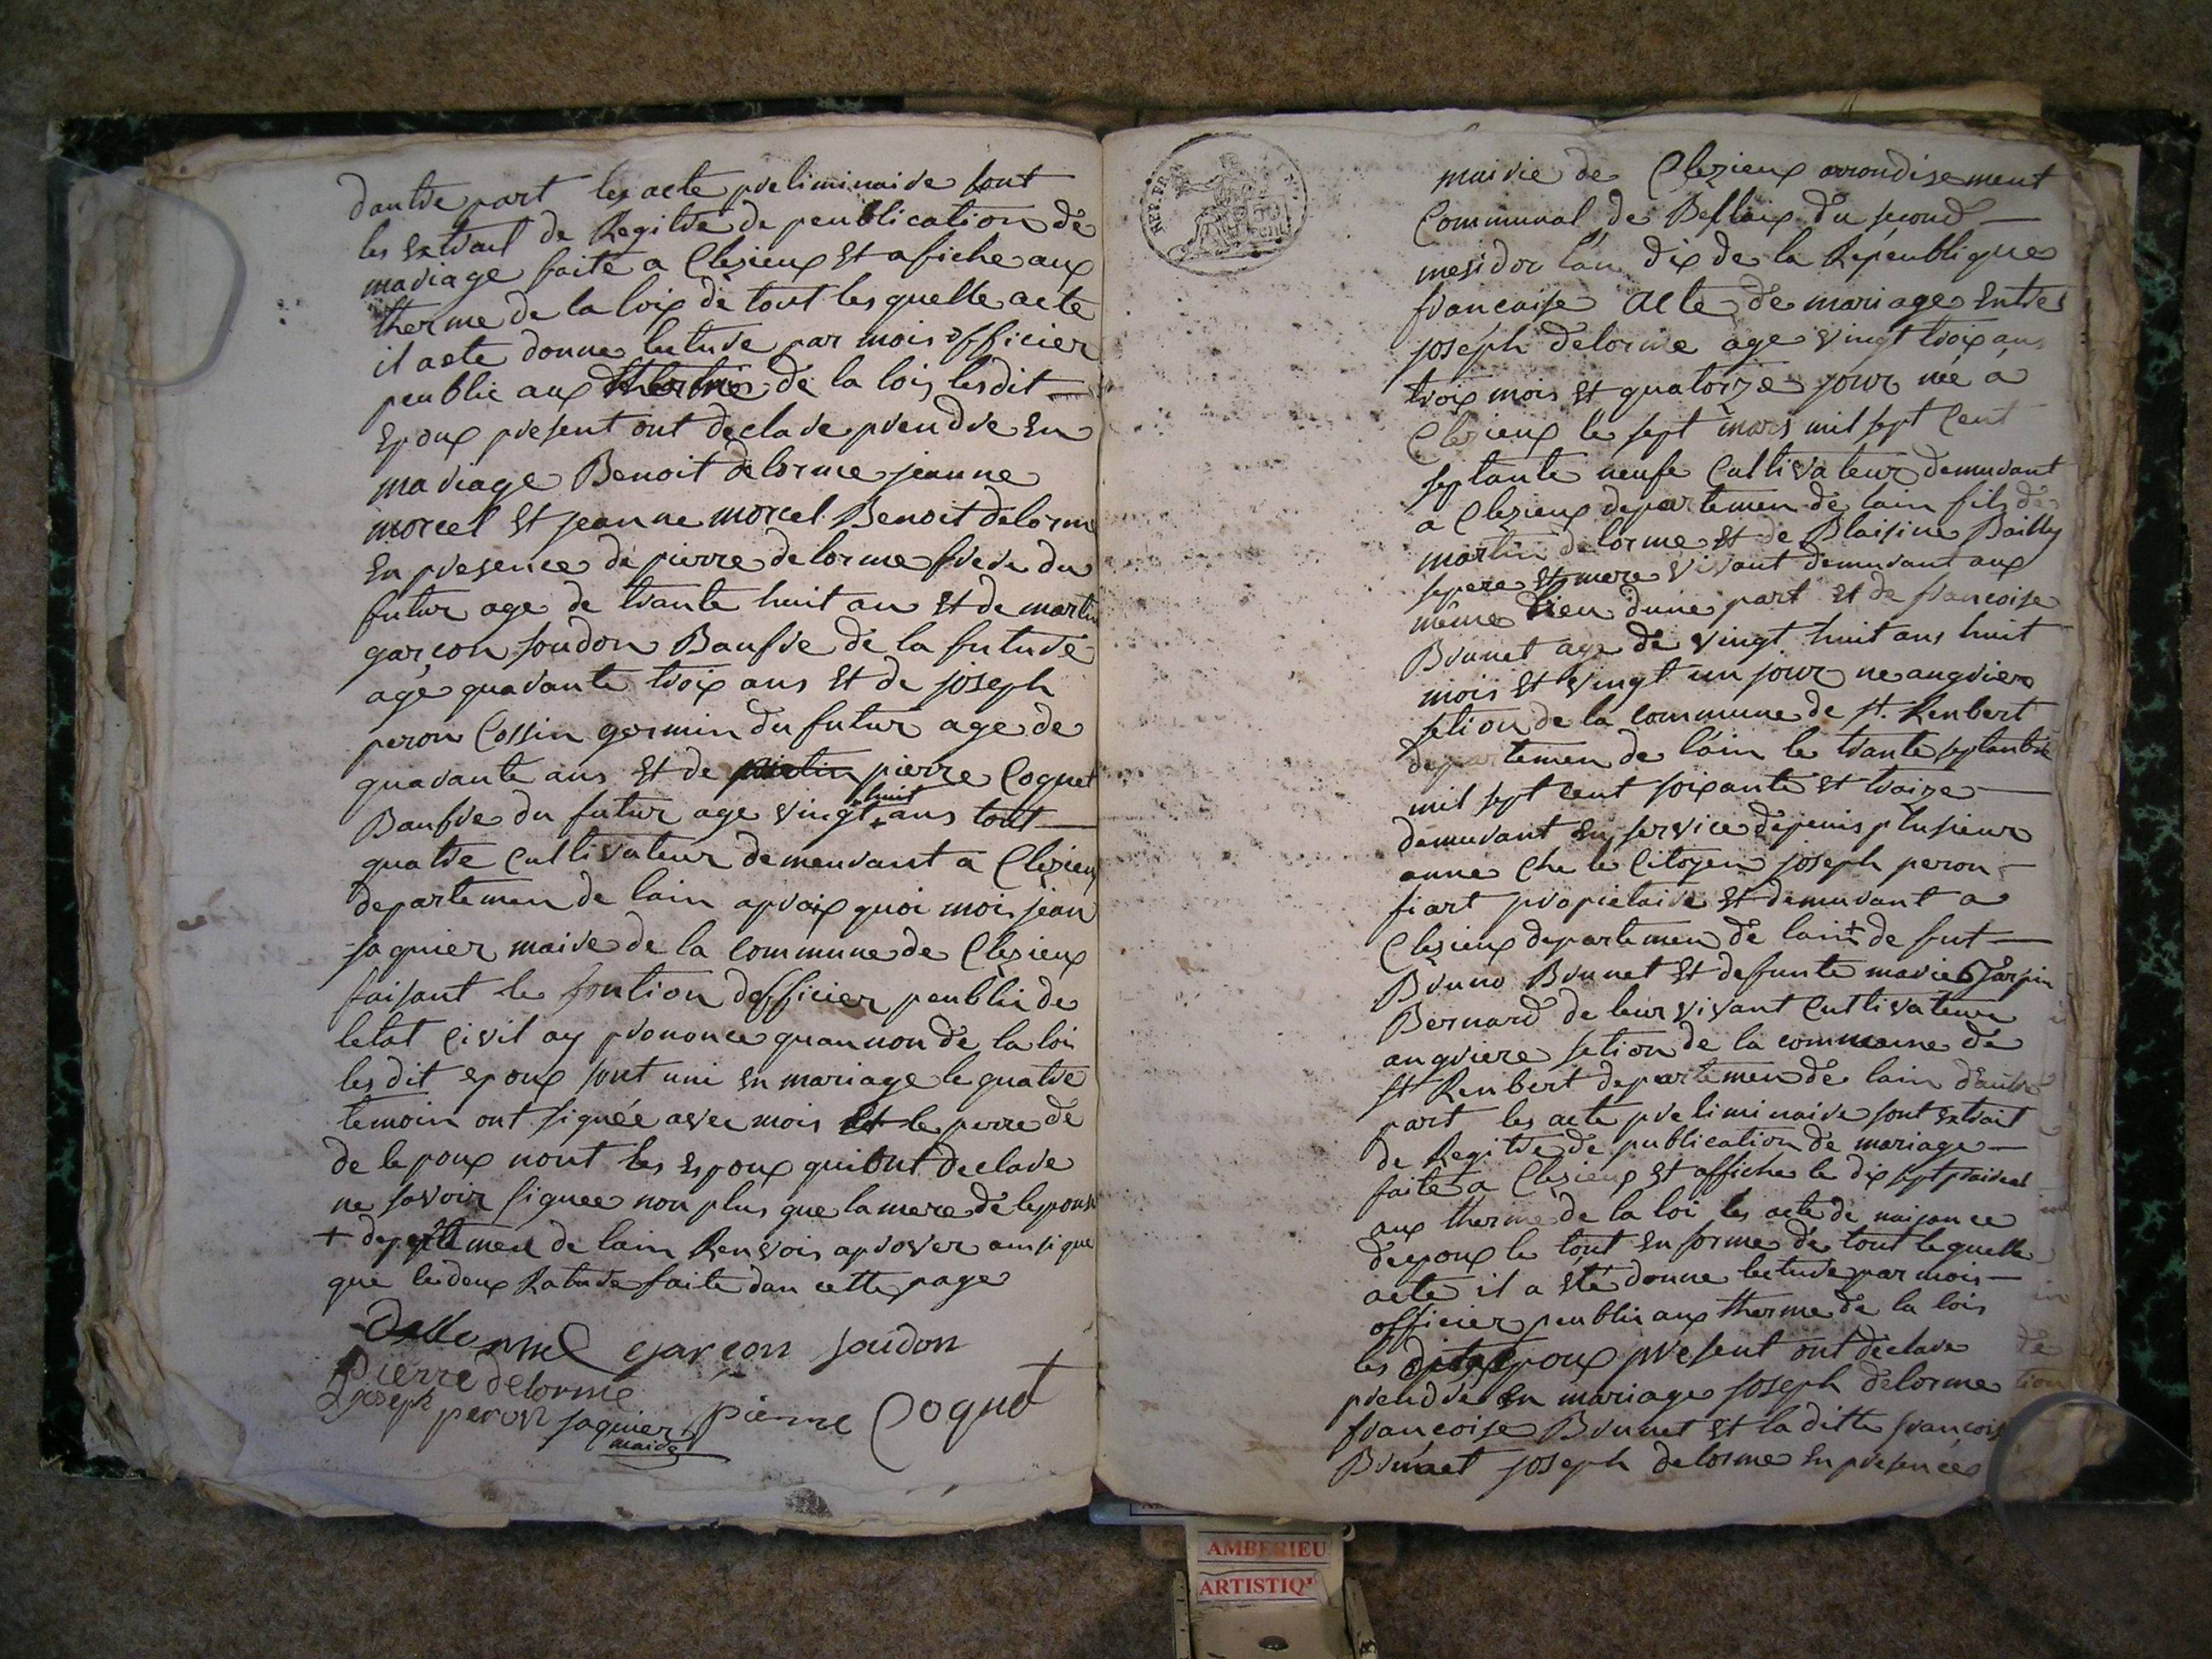 dautre part les acte preliminaire sont
les Extrait de Regitre de peublication de
mariage faite a Clezieux Et afiche aux
therme de la loix de tout les quelle acte
il aete donne lecture par mois officier
peublic aux de la lois lesdit
Epoux present ont declare prendre En
mariage Benoit delorme jeanne
morcel Et jeanne morcel Benoit delorme
En presence de pierre delorme frere du
futur age de trante huit an Et de martin
garçon soudon Baufre de la future
age quarante troix ans Et de joseph
peron Cossin germin du futur age de
quarante ans Et de pierre Coquet
Baufre du futur age vingt huit ans tout
quatre Cultivateur demeurant a Clezieux
departemen de lain apraix quoi mois jean
jaquier maire de la Commune de Clezieux
faisant le fontion dofficier peublic de
letat Civil ay prononce quau non de la loi
les dit epoux sont uni En mariage le quatre
temoin ont signée avec mois Et le perre de
de lepoux nont les Espoux quiont declare
ne savoir signee non plus que la mere de lepouse
+ departemen de lain Renvois aprover ainsi que
que les deux Rature faite dan cette page
Dellorme garçon soudon
Pierre delorme
joseph peron jaquier pierre Coquet
maire
REP. FRA.
50 cent
mairie de Clezieux arrondisement
Communal de Bellaix du second
mesidor l'an dix de la Repeublique
francaise acte de mariage Entre
joseph delorme age vingt troix ans
troix mois Et quatorze jour né a
Clezieux le sept mars mil sept Cent
septante neufe Cultivateur demurant
a Clezieux departemen de lain fils de
martin delorme Et de Blaisine Bailly
sepere Et mere vivant demurant aux
même lieu dune part Et de francoise
Brunet age de vingt huit ans huit
mois Et vingt un jour ne angriere
setion de la Commune de st. Renbert
departemen de l'ain le trante septanbre
mil sept cent soixante Et traize
demurant En service depeuis plusieur
anne Che le Citoyen joseph peron
fiart propietaire Et demurant a
Clezieux departemen de lain + de fut
Bruno Brunet Et defunte marie Jarpin
Bernard de leur vivant Cultivateur
angriere setion de la commune de
st Renbert departemen de lain dautre
part les acte preliminaire sont Extrait
de Regitre de publication de mariage
faite a Clezieux Et affiche le dix sept prairial
aux therme de la loi les acte de naisance
deepoux le tout En forme de tout lequelle
acte il a Eté donne lecture par mois
officier peublic aux therme de la lois
les dits epoux present ont declare
prendre En mariage joseph delorme
françoise Brunet Et laditte françois
Brunet joseph delorme En presence
AMBERIEU
ARTISTIQ'